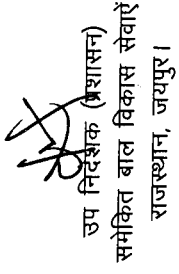 उप निदेशक (प्रशासन)
समेकित बाल विकास सेवाऐं
राजस्थान, जयपुर।